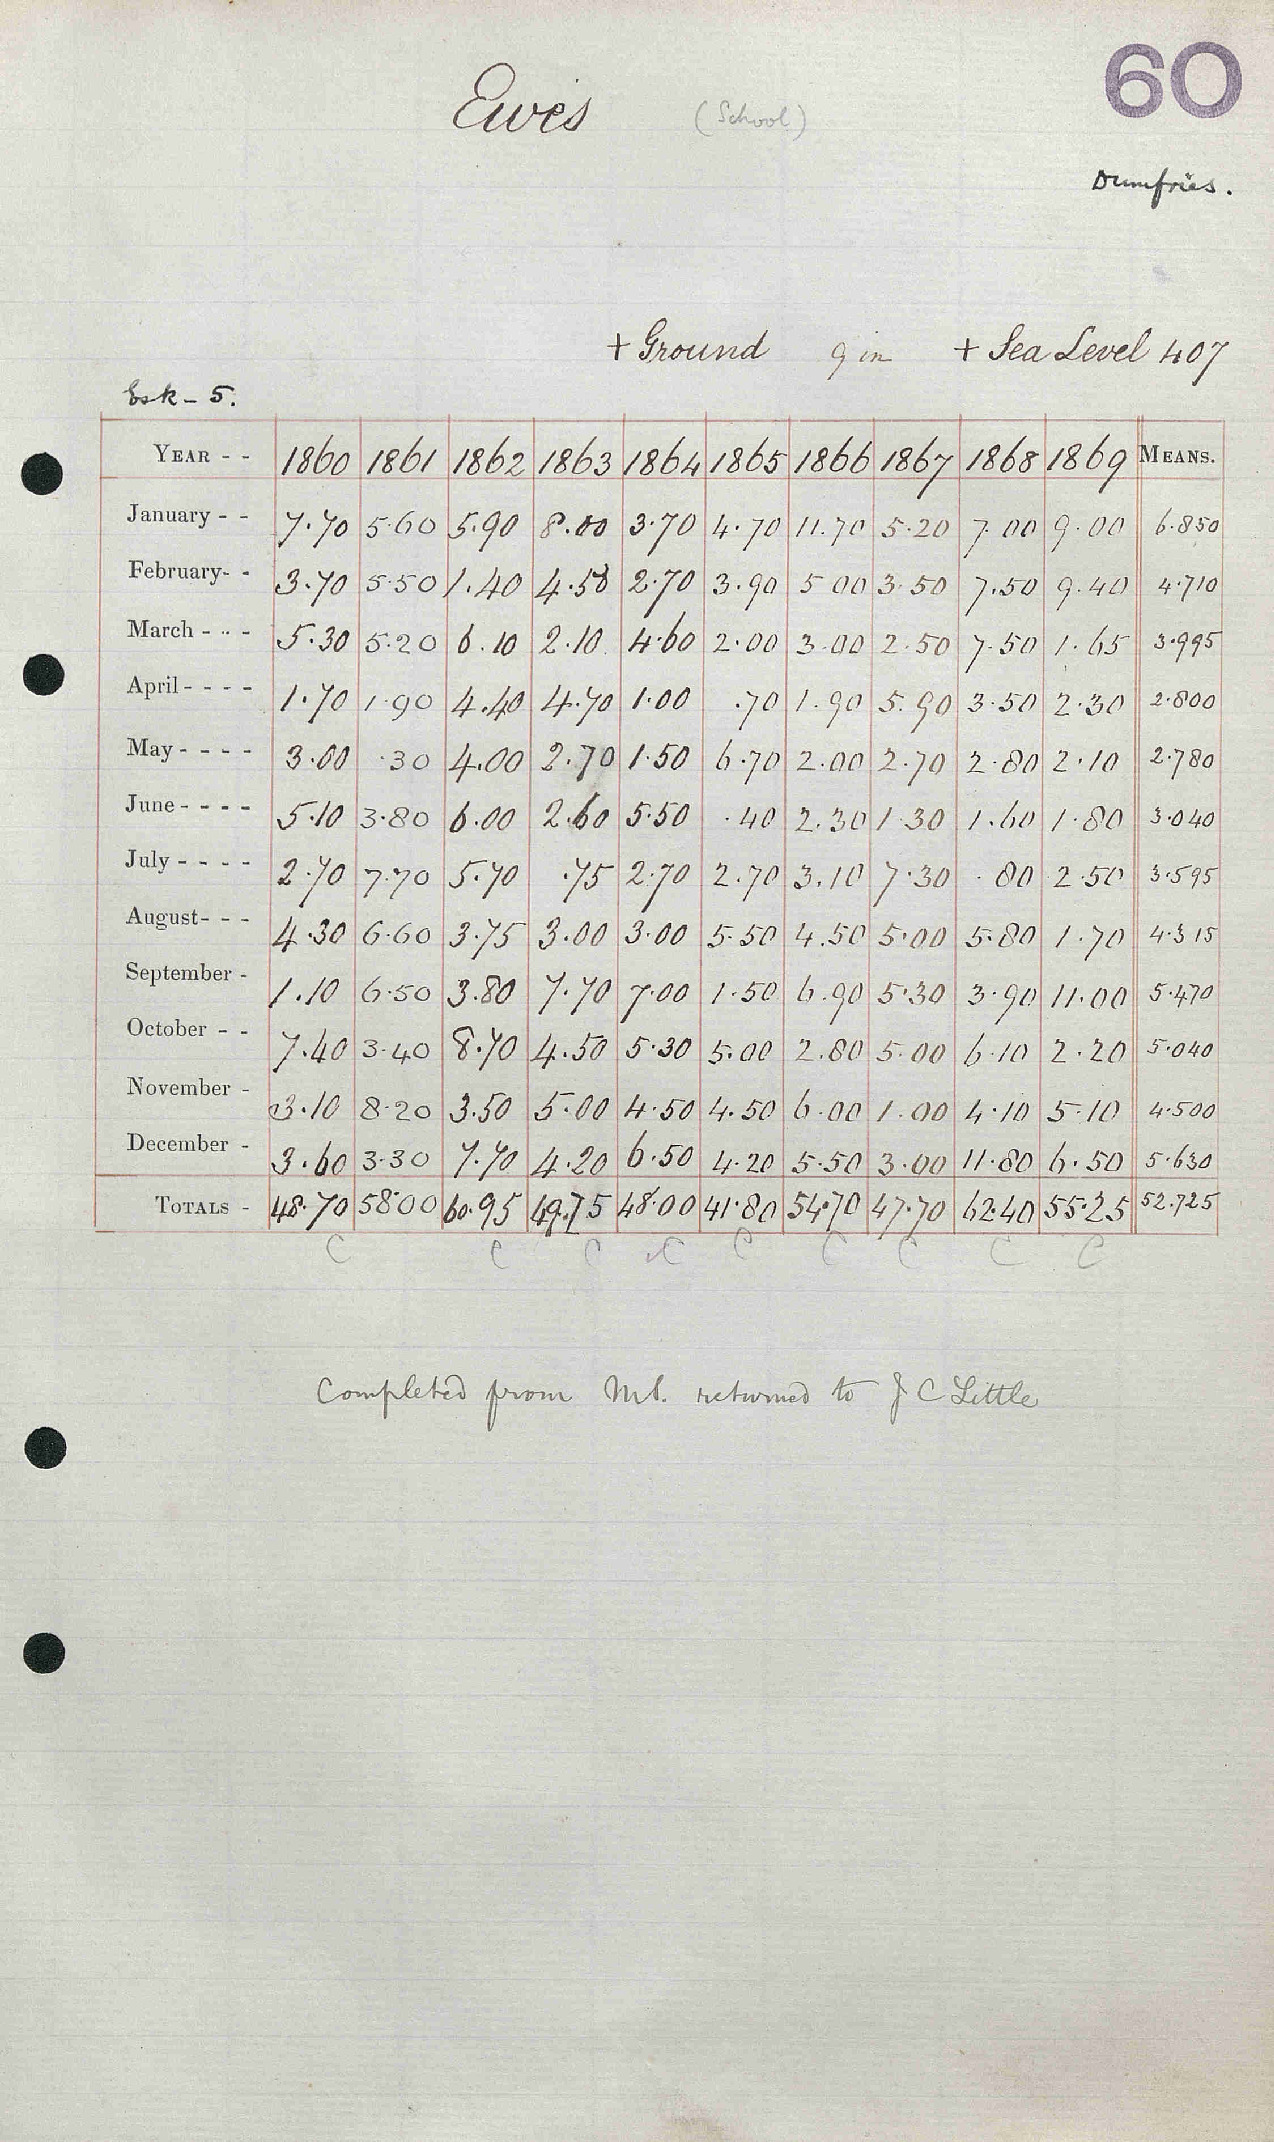 60
Ewes (School)
Dumfries.
+ Ground 9 in + Sea Level 407
Esk - 5.
YEAR - - 1860 1861 1862 1863 1864 1865 1866 1867 1868 1869 MEANS.
January - - 7.70 5.60 5.90 8.00 3.70 4.70 11.70 5.20 7.00 9.00 6.850
February- - 3.70 5.50 1.40 4.50 2.70 3.90 5.00 3.50 7.50 9.40 4.710
March - - - 5.30 5.20 6.10 2.10 4.60 2.00 3.00 2.50 7.50 1.65 3.995
April - - - - 1.70 1.90 4.40 4.70 1.00 .70 1.90 5.90 3.50 2.30 2.800
May - - - - 3.00 .30 4.00 2.70 1.50 6.70 2.00 2.70 2.80 2.10 2.780
June - - - - 5.10 3.80 6.00 2.60 5.50 .40 2.30 1.30 1.60 1.80 3.040
July - - - - 2.70 7.70 5.70 .75 2.70 2.70 3.10 7.30 .80 2.50 3.595
August- - - 4.30 6.60 3.75 3.00 3.00 5.50 4.50 5.00 5.80 1.70 4.315
September - 1.10 6.50 3.80 7.70 7.00 1.50 6.90 5.30 3.90 11.00 5.470
October - - 7.40 3.40 8.70 4.50 5.30 5.00 2.80 5.00 6.10 2.20 5.040
November - 3.10 8.20 3.50 5.00 4.50 4.50 6.00 1.00 4.10 5.10 4.500
December - 3.60 3.30 7.70 4.20 6.50 4.20 5.50 3.00 11.80 6.50 5.630
TOTALS - 48.70 58.00 60.95 49.75 48.00 41.80 54.70 47.70 62.40 55.25 52.725
C C C C C C C C C
Completed from MS. returned to J C Little